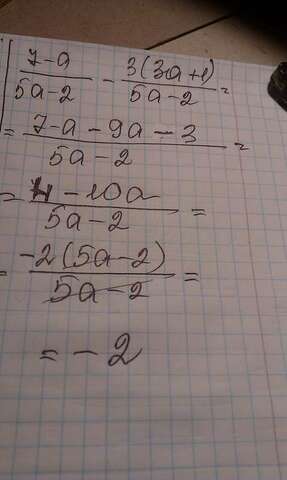 7-a / 5a-2 - 3(3a+1) / 5a-2 =
= 7-a-9a-3 / 5a-2 =
= 4-10a / 5a-2 =
= -2(5a-2) / 5a-2 =
= -2